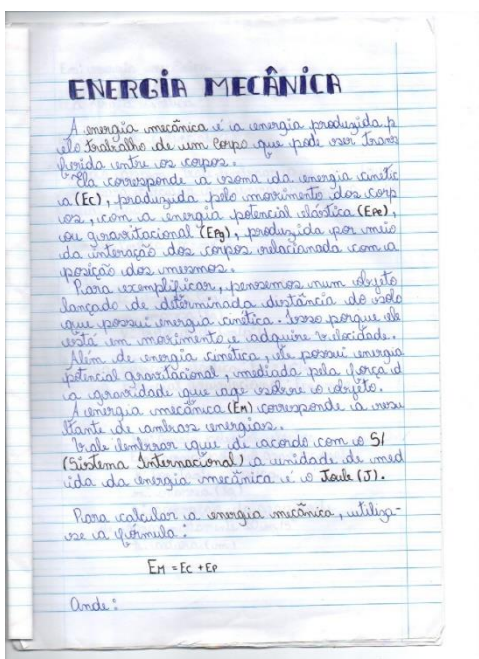 ENERGIA MECÂNICA
A energia mecânica é a energia produzida p
elo trabalho de um corpo que pode ser trans
ferida entre os corpos.
Ela corresponde a soma da energia cinétic
a (Ec), produzida pelo movimento dos corp
os, com a energia potencial elástica (Epe),
ou gravitacional (Epg), produzida por meio
da interação dos corpos relacionada com a
posição dos mesmos.
Para exemplificar, pensemos num objeto
lançado de determinada distância do solo
que possui energia cinética. Isso porque ele
está em movimento e adquire velocidade.
Além de energia cinética, ele possui energia
potencial gravitacional, mediada pela força d
a gravidade que age sobre o objeto.
A energia mecânica (Em) corresponde a resu
ltante de ambas energias.
Vale lembrar que de acordo com o SI
(Sistema Internacional) a unidade de med
ida da energia mecânica é o Joule (J).
Para calcular a energia mecânica, utiliza-
se a fórmula:
EM = EC + EP
Onde: